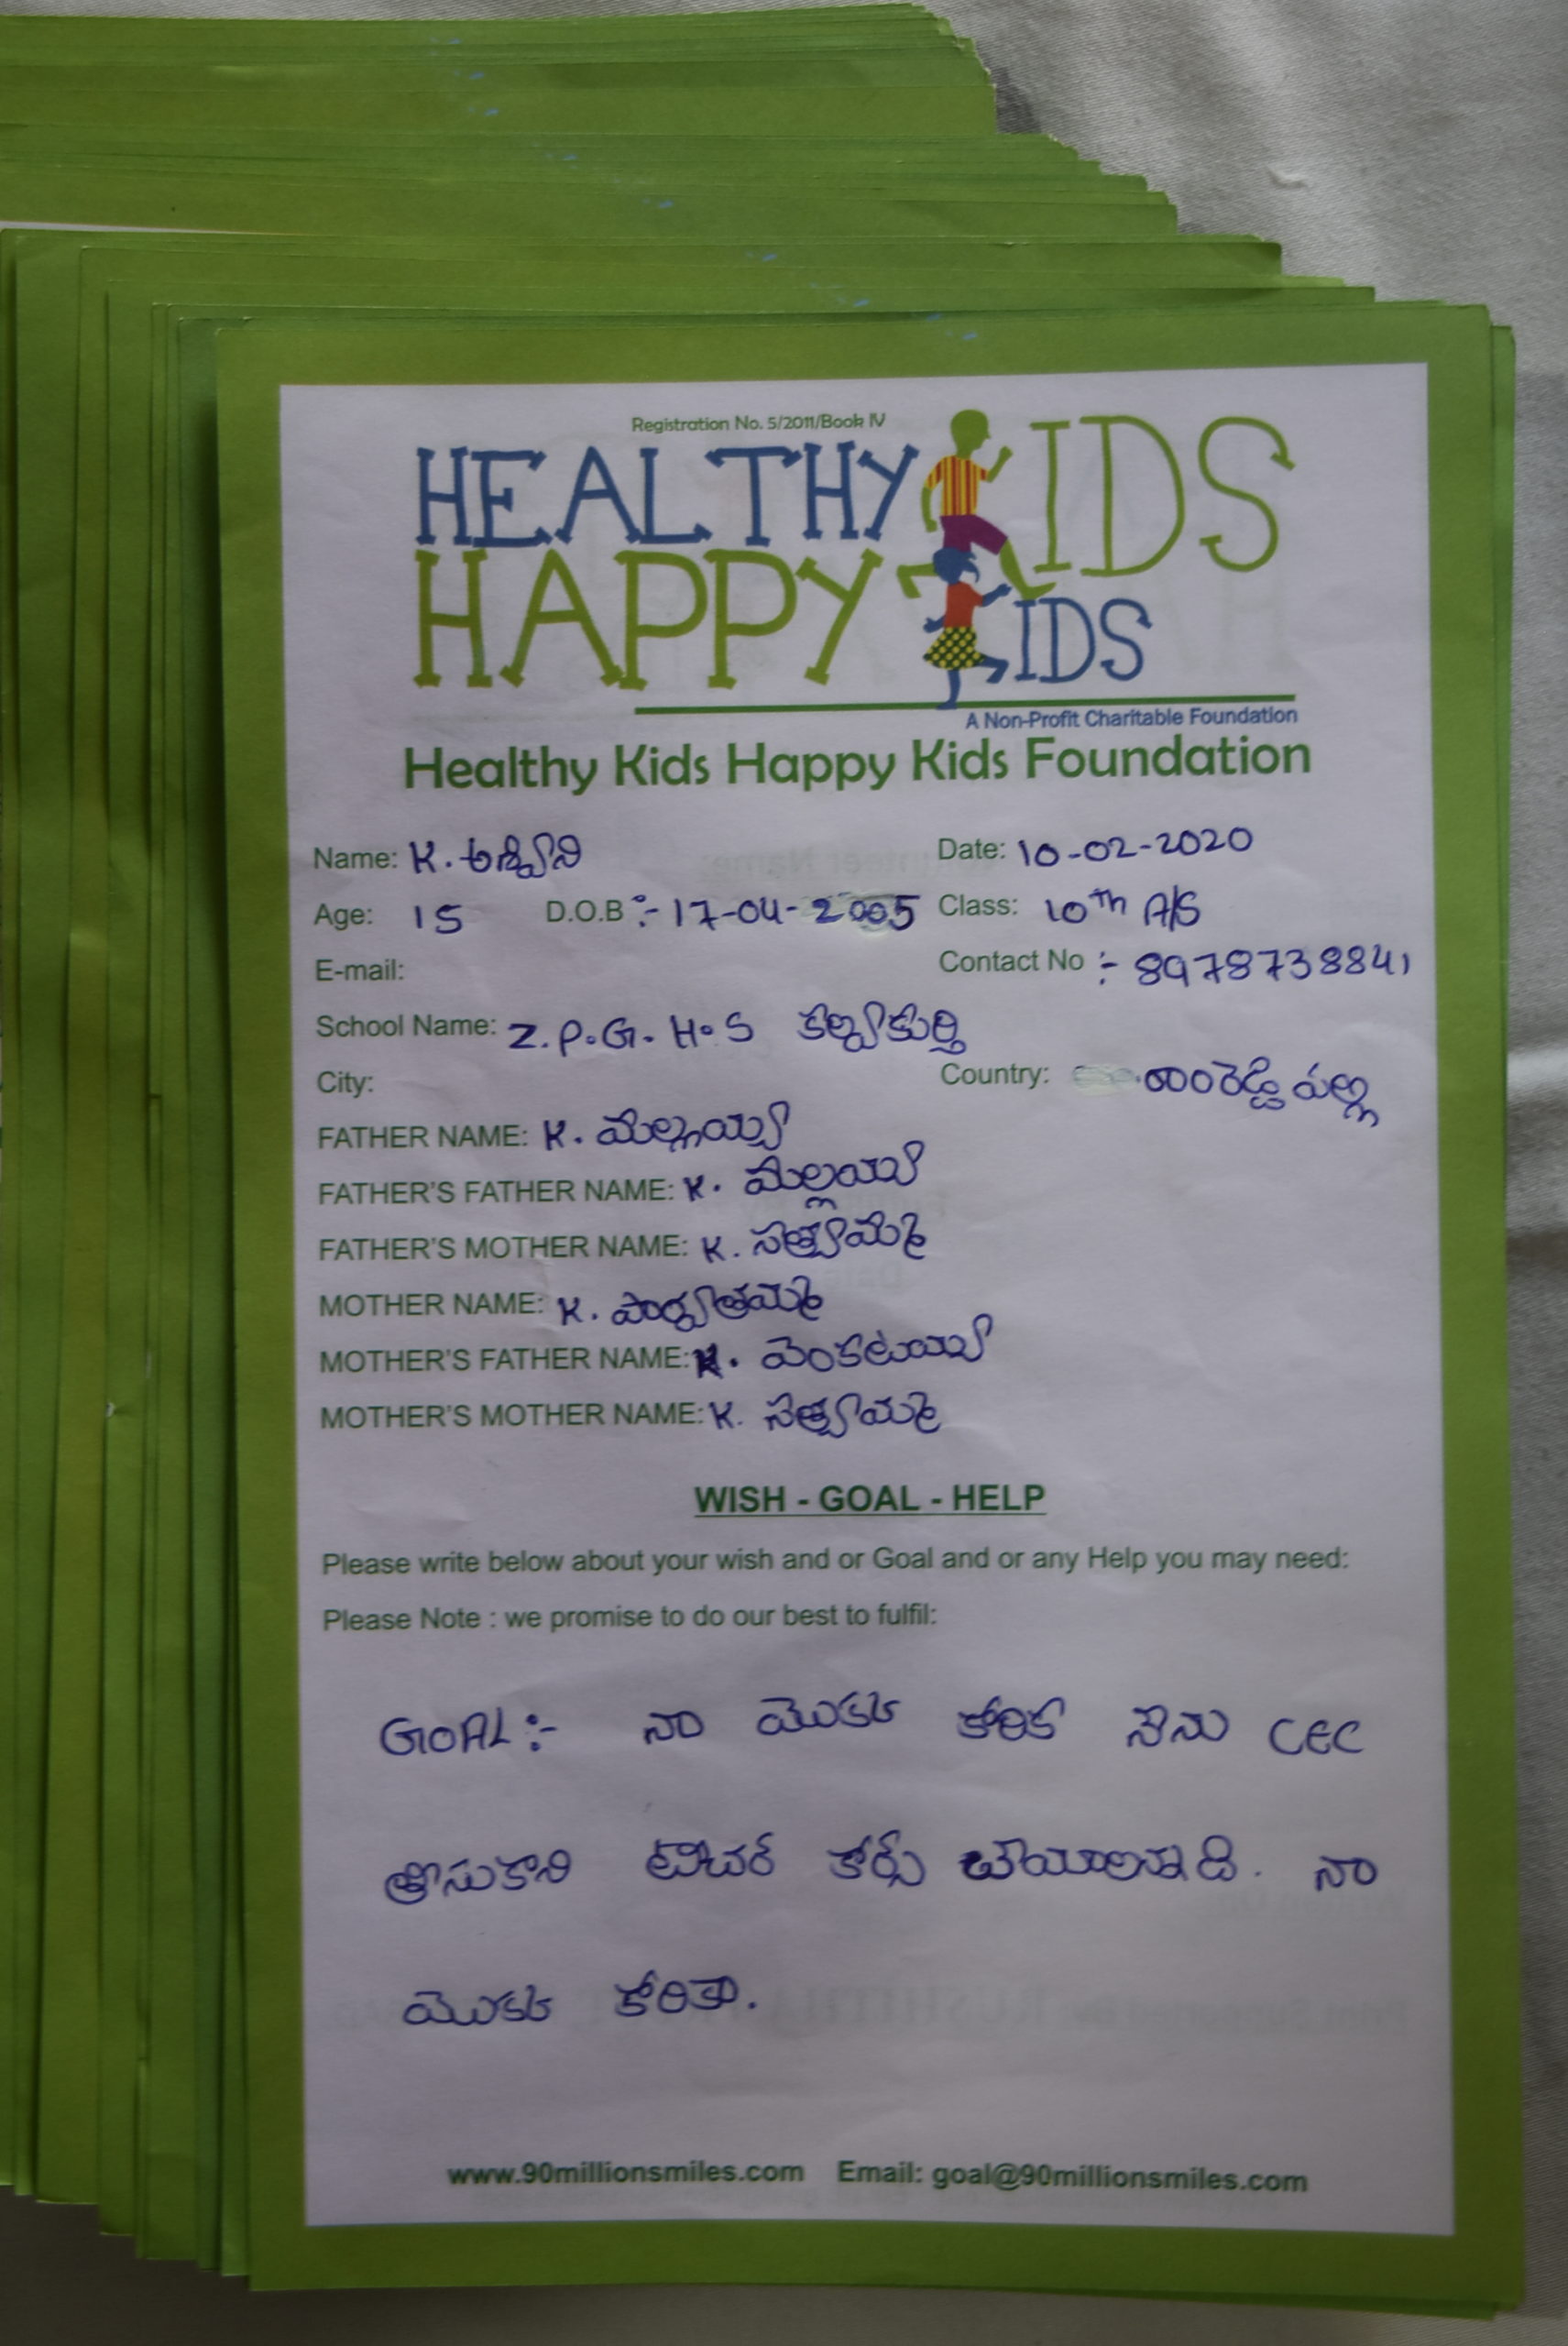 Registration No. 5/2011/Book IV
HEALTHY KIDS
HAPPY KIDS
A Non-Profit Charitable Foundation
Healthy Kids Happy Kids Foundation
Name: K. అశ్విని Date: 10-02-2020
Age: 15 D.O.B :- 17-04-2005 Class: 10th A/S
E-mail: Contact No :- 8978738841
School Name: Z.P.G.H.S కల్వకుర్తి
City: Country: రాంరెడ్డి పల్లి
FATHER NAME: K. మల్లయ్య
FATHER'S FATHER NAME: K. మల్లయ్య
FATHER'S MOTHER NAME: K. సత్యమ్మ
MOTHER NAME: K. పార్వతమ్మ
MOTHER'S FATHER NAME: K. వెంకటయ్య
MOTHER'S MOTHER NAME: K. సత్యమ్మ
WISH - GOAL - HELP
Please write below about your wish and or Goal and or any Help you may need:
Please Note : we promise to do our best to fulfil:
GOAL :- నా మొకట కోరిక నేను CEC
తీసుకాని టీచర్ కోర్స్ చేయాలన్నది. నా
మొకట కోరికా.
www.90millionsmiles.com Email: goal@90millionsmiles.com